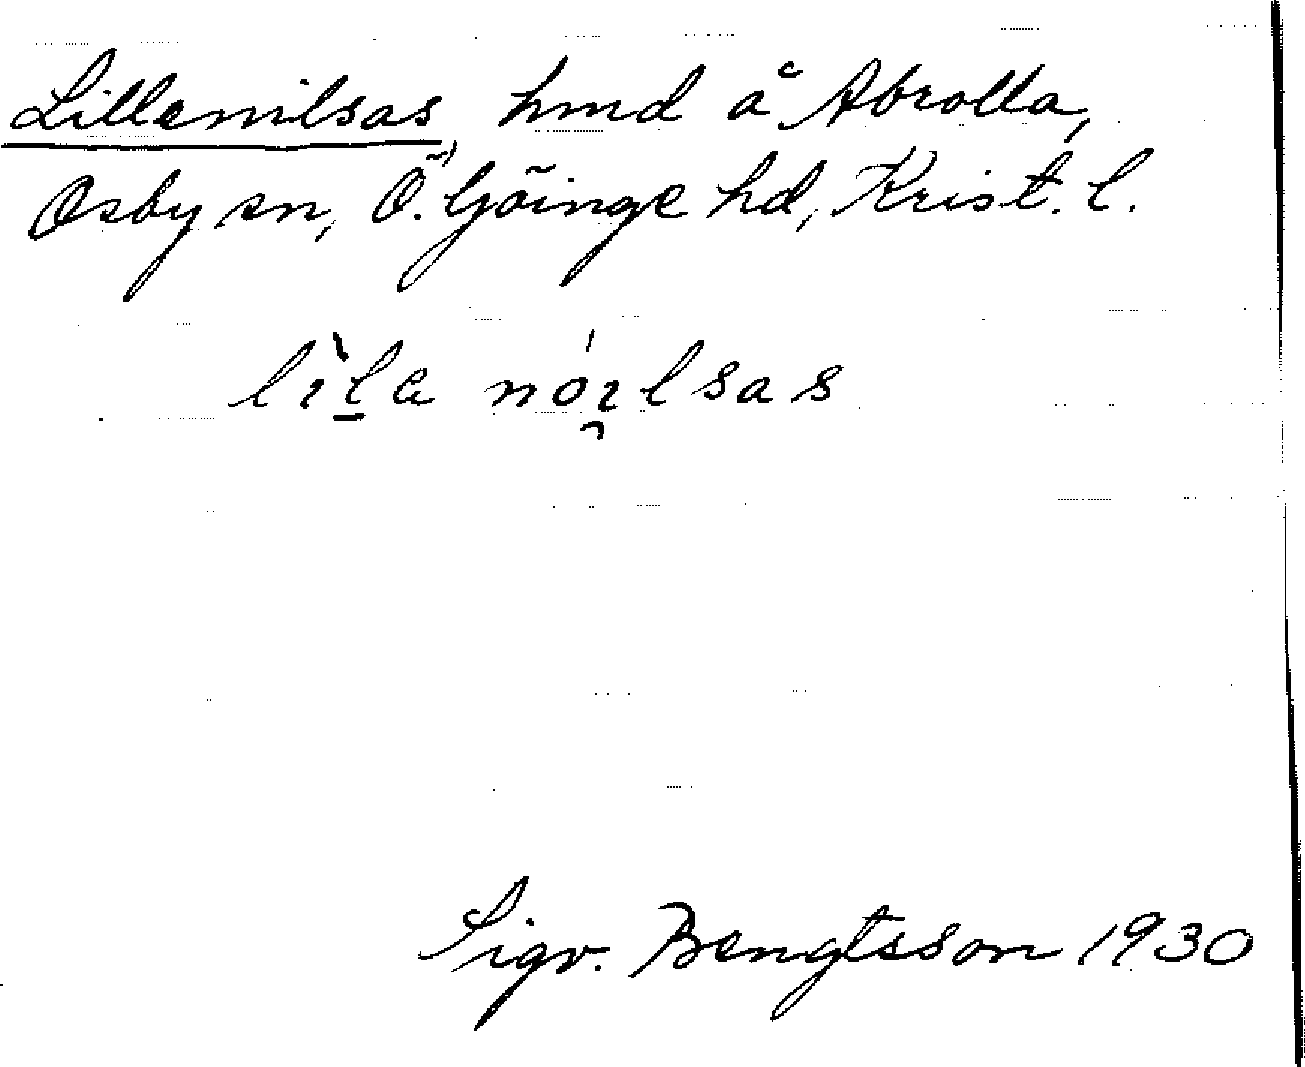 Lillenilsas, hmd å Abrolla,
Osby sn, Ö. Göinge hd, Krist. l.
lìla nóɪlsas
Sigv. Bengtsson 1930